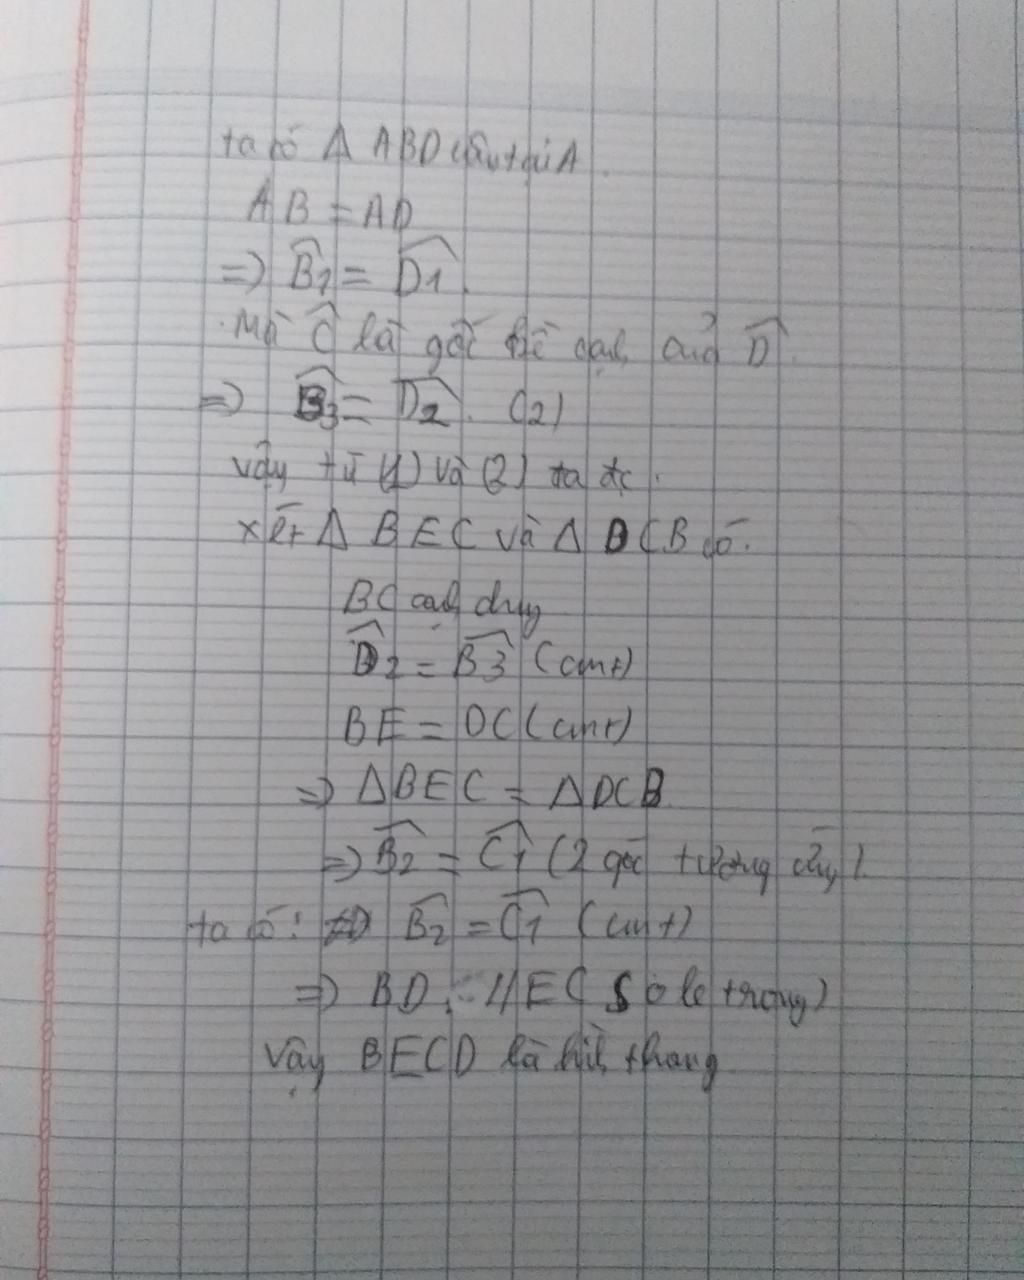 ta có Δ ABD cân tại A.
AB = AD
=> B̂1 = D̂1.
Mà Ĉ là góc kề cạnh của D̂.
=> B̂3 = D̂2. (2)
vậy từ (1) và (2) ta đc.
xét Δ BEC và Δ DCB có.
BC cạnh chung
D̂2 = B̂3 (cmt)
BE = DC (cmt)
=> ΔBEC = ΔDCB
=> B̂2 = Ĉ1 (2 góc tương ứng).
ta có: B̂2 = Ĉ1 (cmt)
=> BD // EC so le trong)
Vậy BECD là hình thang